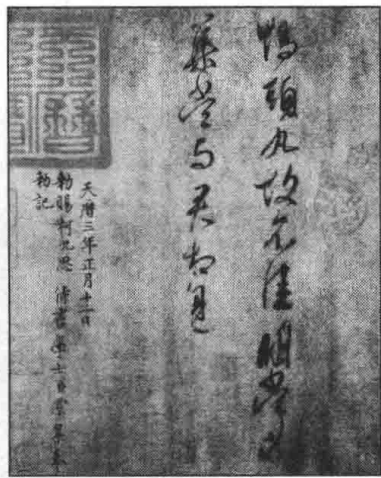 鴨頭丸故不佳明當必
集當与君相見
天曆三年正月十二日
勑賜柯九思侍書學士臣虞集奉
勑記
天曆